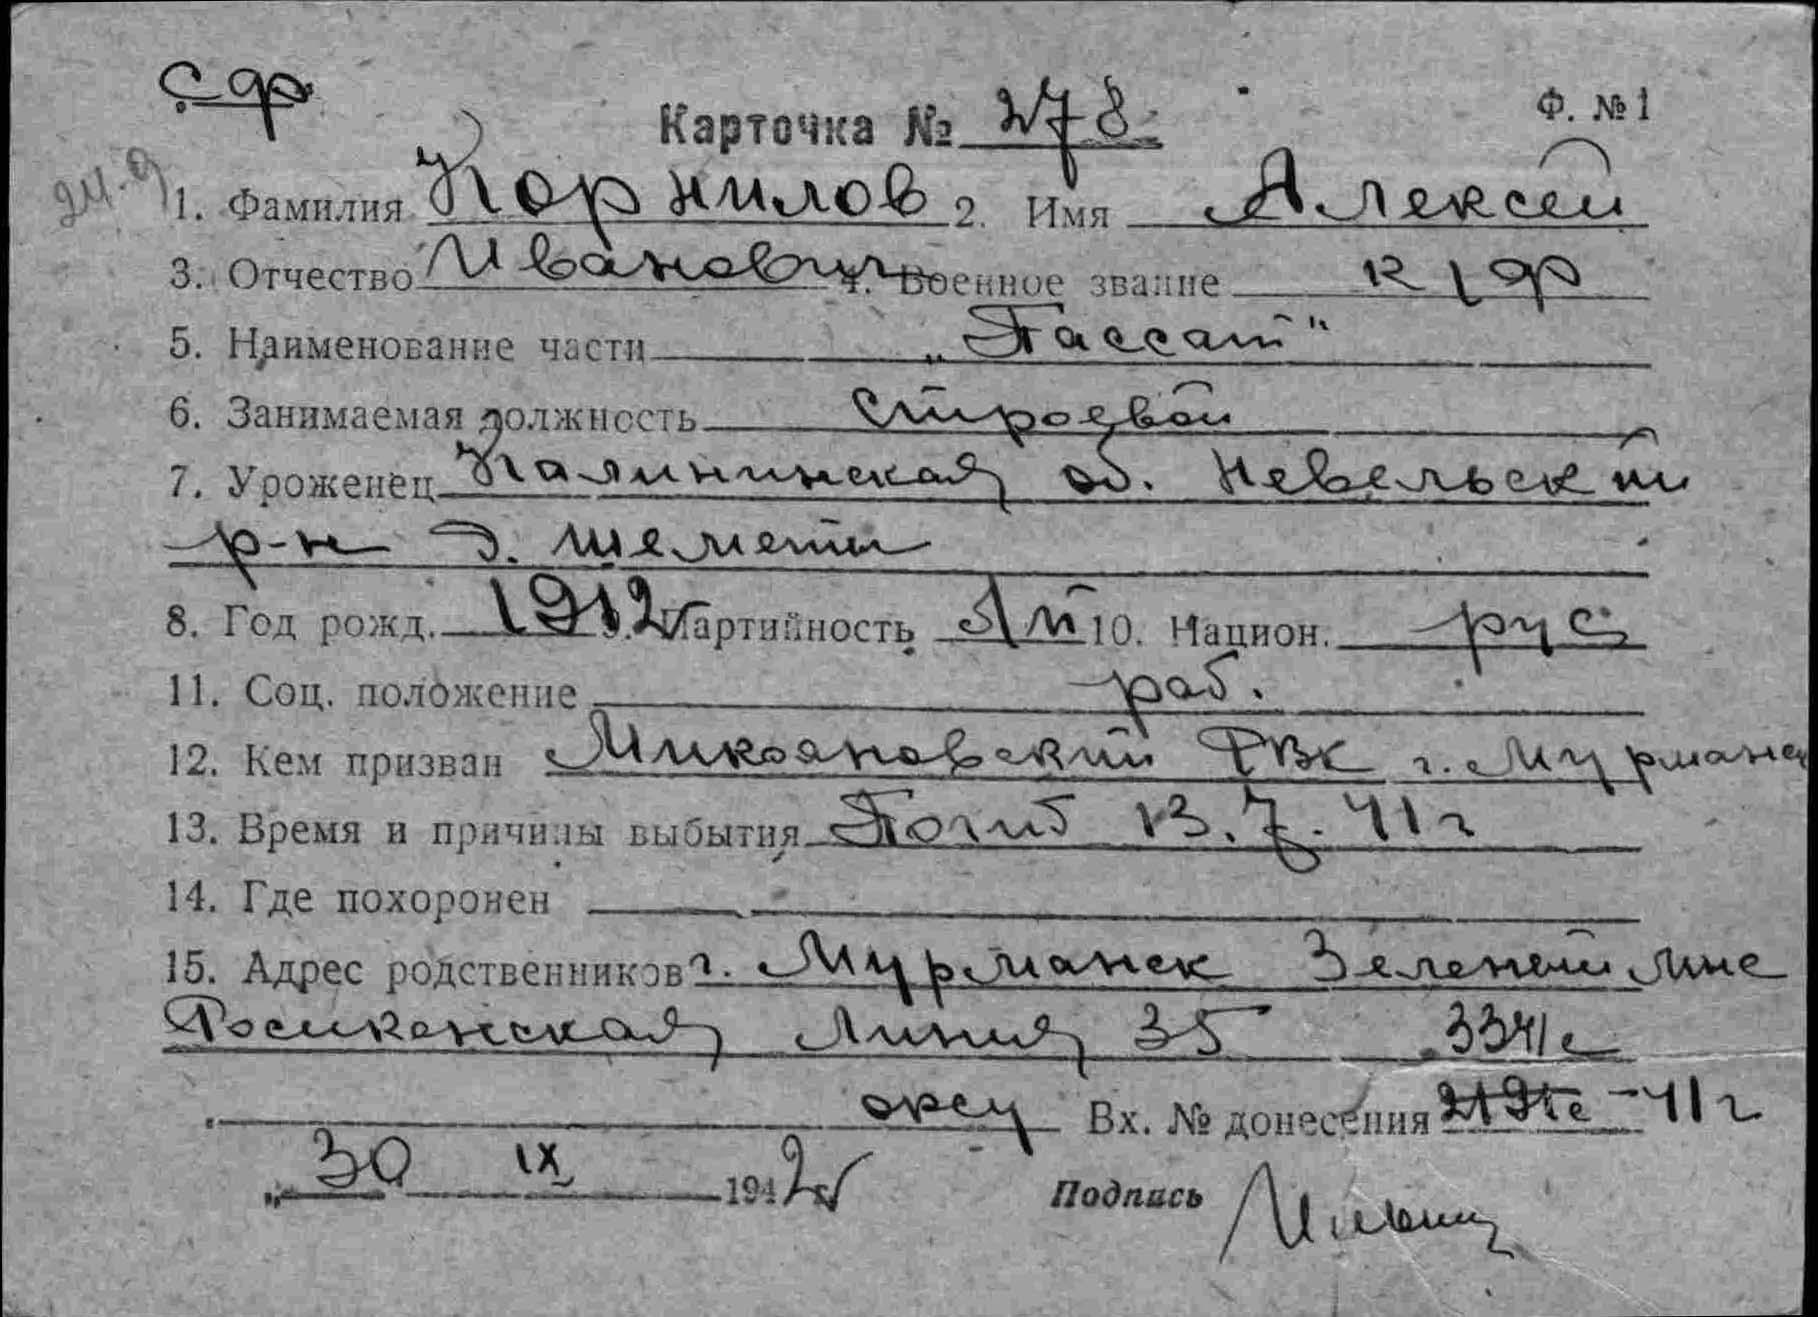 Сф.
Карточка № 278 Ф. №1
1. Фамилия Корнилов 2. Имя Алексей
3. Отчество Иванович 4. Военное звание к/ф
5. Наименование части „Пассат"
6. Занимаемая должность строевой
7. Уроженец Калининская об. Невельский
р-н д. Шеметы
8. Год рожд. 1912 9. Партийность 10. Национ. рус
11. Соц. положение раб.
12. Кем призван Микояновский РВК г. Мурманск
13. Время и причины выбытия Погиб 13.7.41 г
14. Где похоронен
15. Адрес родственников г. Мурманск Зеленый мыс
линия 35 3341с
Вх. № донесения -41 г
„ 30 IX 1942
Подпись